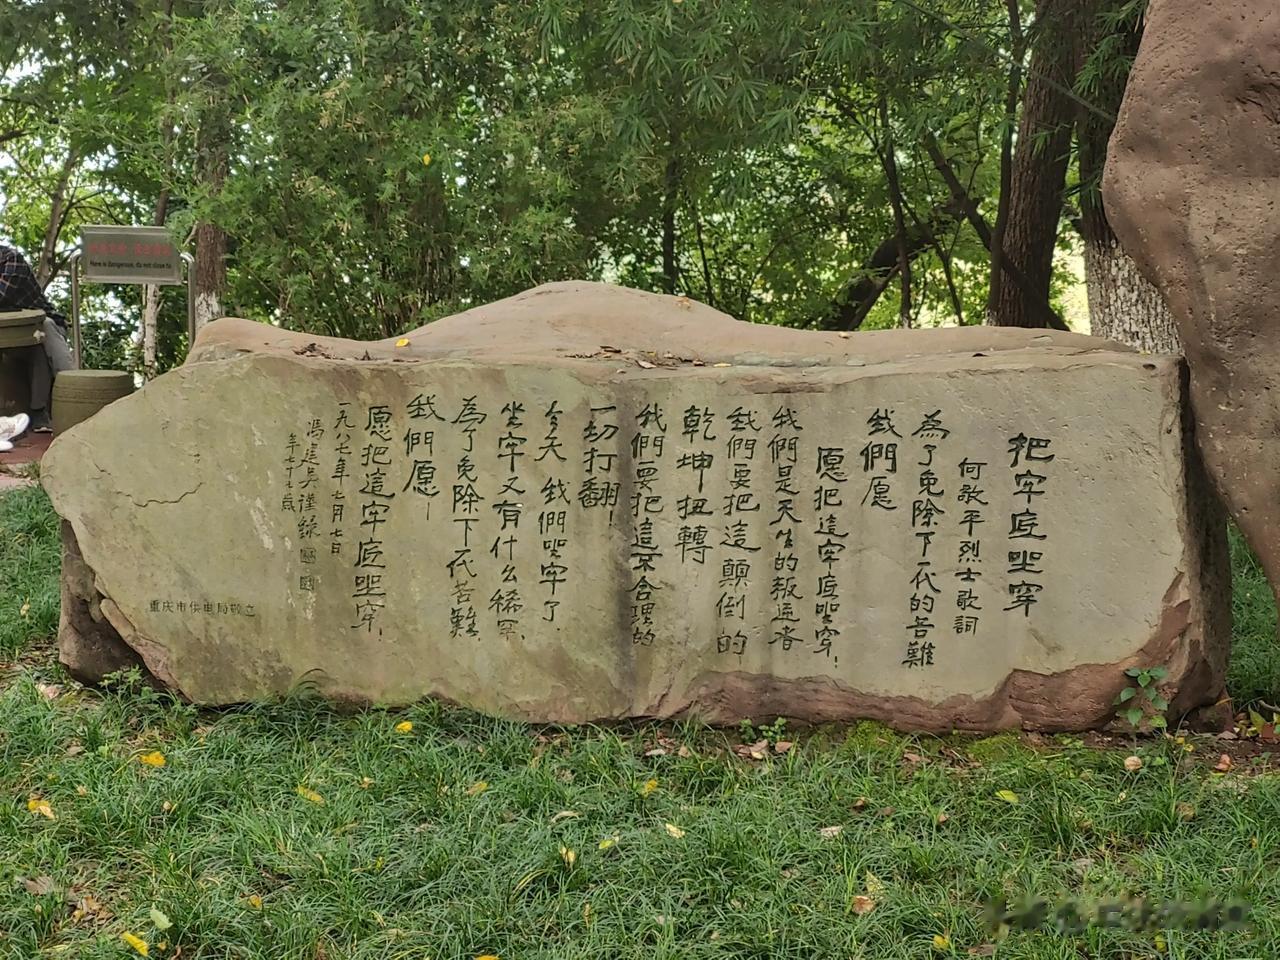 把牢底坐穿
何敬平烈士歌詞
為了免除下一代的苦難
我們愿
愿把這牢底坐穿！
我們是天生的叛逆者
我們要把這顛倒的
乾坤扭轉
我們要把這不合理的
一切打翻！
今天 我們坐牢了
坐牢又有什么稀罕
為了免除下一代苦難
我們愿—
愿把這牢底坐穿！
一九八七年七月七日
馮建吳謹錄
年七十七歲
重庆市供电局敬立
Here is dangerous, do not close to